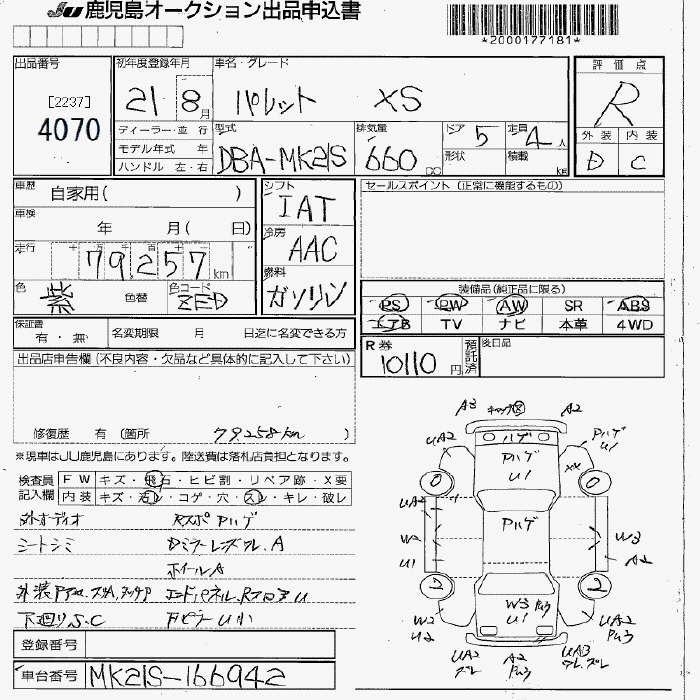 JU 鹿児島オークション出品申込書
*2000177181*
出品番号
[2237]
4070
初年度登録年月
21 8月
車名・グレード
パレット XS
評価点
R
外装 内装
D C
ディーラー・並行
モデル年式 年
ハンドル 左・右
型式
DBA-MK21S
排気量
660 cc
ドア 5
形状
定員 4人
積載 kg
車歴
自家用( )
車検
年 月( 日)
走行
79257 km
色
紫
色替
色コード
ZED
シフト
IAT
冷房
AAC
燃料
ガソリン
セールスポイント(正常に機能するもの)
装備品(純正品に限る)
PS PW AW SR ABS
エアB TV ナビ 本革 4WD
保証書
有・無
名変期限 月 日迄に名変できる方
R券
10110円
預託済
後日品
出品店申告欄(不良内容・欠品など具体的に記入して下さい)
修復歴 有 (箇所 79258km )
※現車はJU鹿児島にあります。陸送費は落札店負担となります。
検査員
記入欄
FW キズ・飛石・ヒビ割・リペア跡・X要
内装 キズ・汚レ・コゲ・穴・スレ・キレ・破レ
外オーディオ
シートシミ
ホイールA
下廻りS.C
登録番号
車台番号
MK21S-166942
A3 キャップ A2
UA2 ハゲ Pハゲ
U1
Pハゲ
U1
XX
0 0
UA2 Pハゲ
W2 W3
U1 A2
2 2
W2
U2
W3 Pム3
U1
UA2
Pム3
UA2
ズレ
A2
Pム3
UA3
ワレ.ズレ